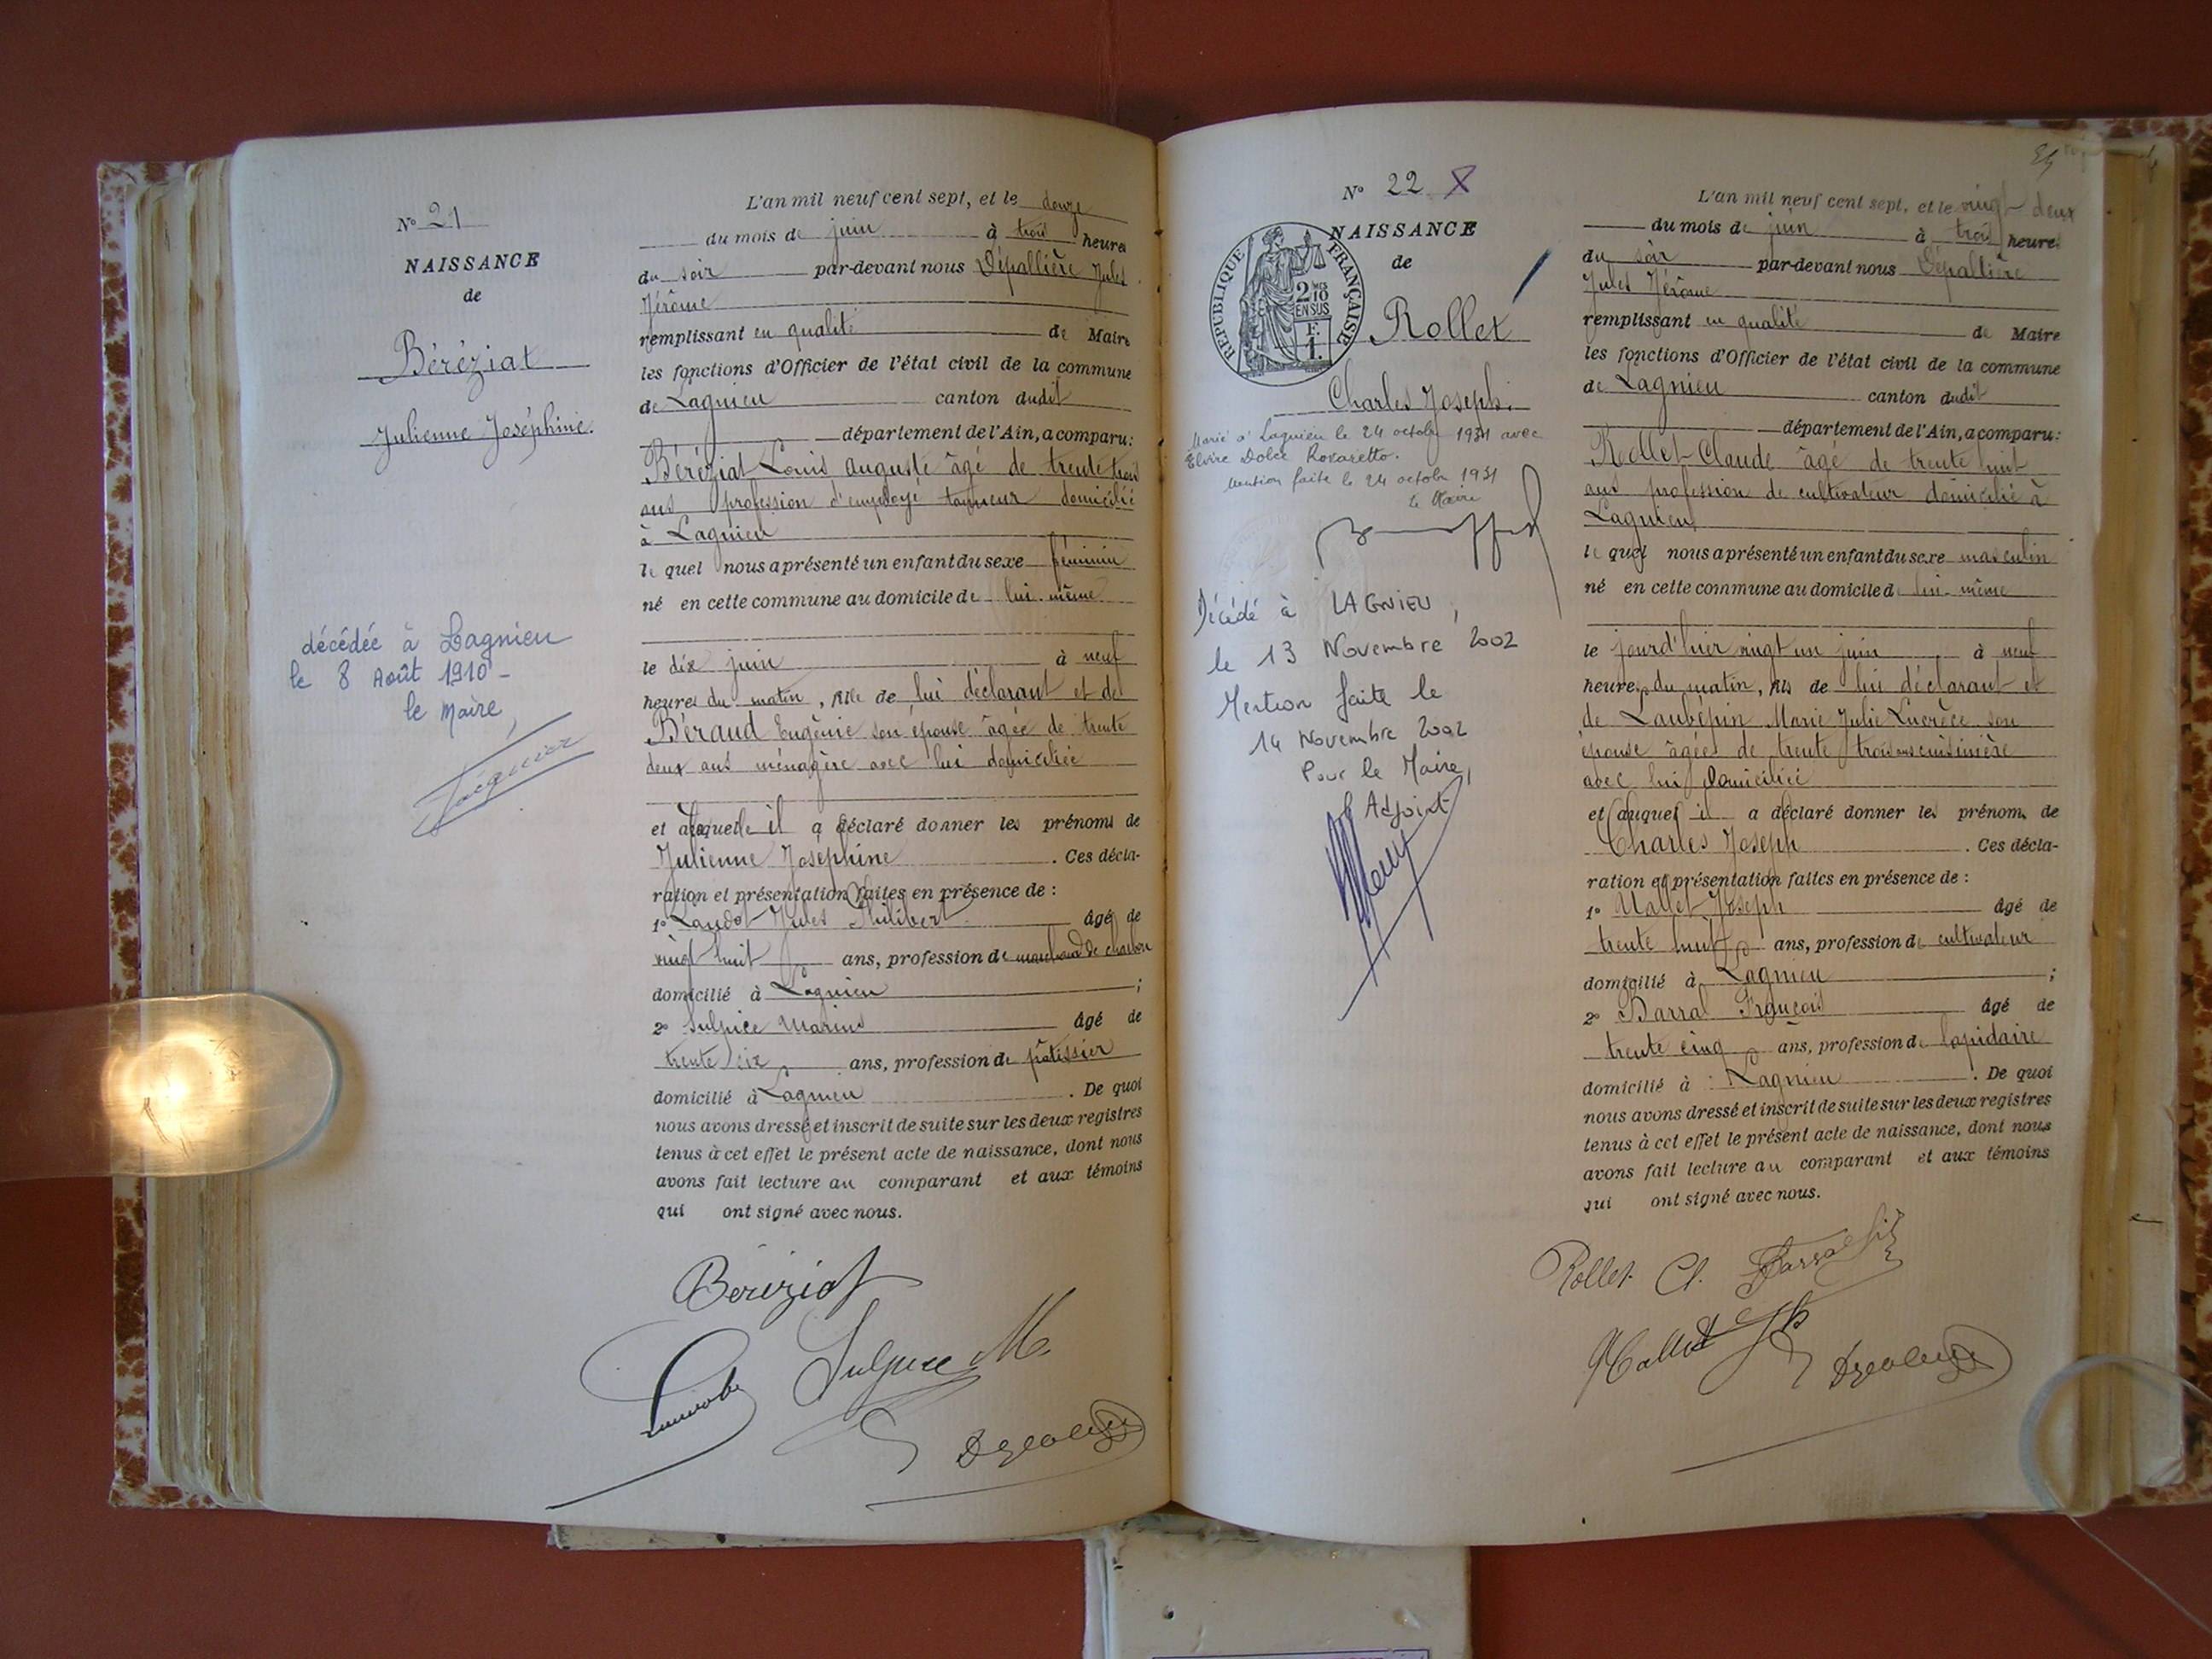 N° 21
NAISSANCE
de
Béréziat
Julienne Joséphine.
décédée à Lagnieu
le 8 Août 1910 -
le Maire,
L'an mil neuf cent sept, et le douze
du mois de juin à trois heures
du soir par-devant nous Dépallière Jules
Jérôme
remplissant en qualité de Maire
les fonctions d'Officier de l'état civil de la commune
de Lagnieu canton dudit
département de l'Ain, a comparu:
Béréziat Louis Auguste âgé de trente trois
ans profession d'employé tanneur domicilié
à Lagnieu
lequel nous a présenté un enfant du sexe féminin
né en cette commune au domicile de lui-même
le dix juin à neuf
heures du matin, fille de lui déclarant et de
Béraud Eugénie son épouse âgée de trente
deux ans ménagère avec lui domiciliée
et à laquelle il a déclaré donner les prénoms de
Julienne Joséphine. Ces décla-
ration et présentation faites en présence de :
1° Jules Philibert âgé de
vingt huit ans, profession de marchand de charbon
domicilié à Lagnieu ;
2° Sulpice Marius âgé de
trente six ans, profession de pâtissier
domicilié à Lagnieu. De quoi
nous avons dressé et inscrit de suite sur les deux registres
tenus à cet effet le présent acte de naissance, dont nous
avons fait lecture au comparant et aux témoins
qui ont signé avec nous.
Béréziat
Sulpice M.
N° 22 X
NAISSANCE
de
REPUBLIQUE FRANÇAISE
2 MES 10 EN SUS
F. 1.
Rollet
Charles Joseph.
Marié à Lagnieu le 24 octobre 1931 avec
Elvire Dolce Rozaretto.
Mention faite le 24 octobre 1931
le Maire
Décédé à LAGNIEU,
le 13 Novembre 2002
Mention faite le
14 Novembre 2002
Pour le Maire,
l'Adjoint
L'an mil neuf cent sept, et le vingt-deux
du mois de juin à trois heures
du soir par-devant nous Dépallière
Jules Jérôme
remplissant en qualité de Maire
les fonctions d'Officier de l'état civil de la commune
de Lagnieu canton dudit
département de l'Ain, a comparu:
Rollet Claude âgé de trente huit
ans profession de cultivateur domicilié à
Lagnieu
lequel nous a présenté un enfant du sexe masculin
né en cette commune au domicile de lui-même
le jourd'hier vingt un juin à neuf
heures du matin, fils de lui déclarant et
de Laubépin Marie Julie Lucrèce son
épouse âgée de trente trois ans cuisinière
avec lui domiciliée
et auquel il a déclaré donner les prénoms de
Charles Joseph. Ces décla-
ration et présentation faites en présence de :
1° Mallet Joseph âgé de
trente huit ans, profession de cultivateur
domicilié à Lagnieu ;
2° Barral François âgé de
trente cinq ans, profession de lapidaire
domicilié à Lagnieu. De quoi
nous avons dressé et inscrit de suite sur les deux registres
tenus à cet effet le présent acte de naissance, dont nous
avons fait lecture au comparant et aux témoins
qui ont signé avec nous.
Rollet Cl. Barral
Mallet